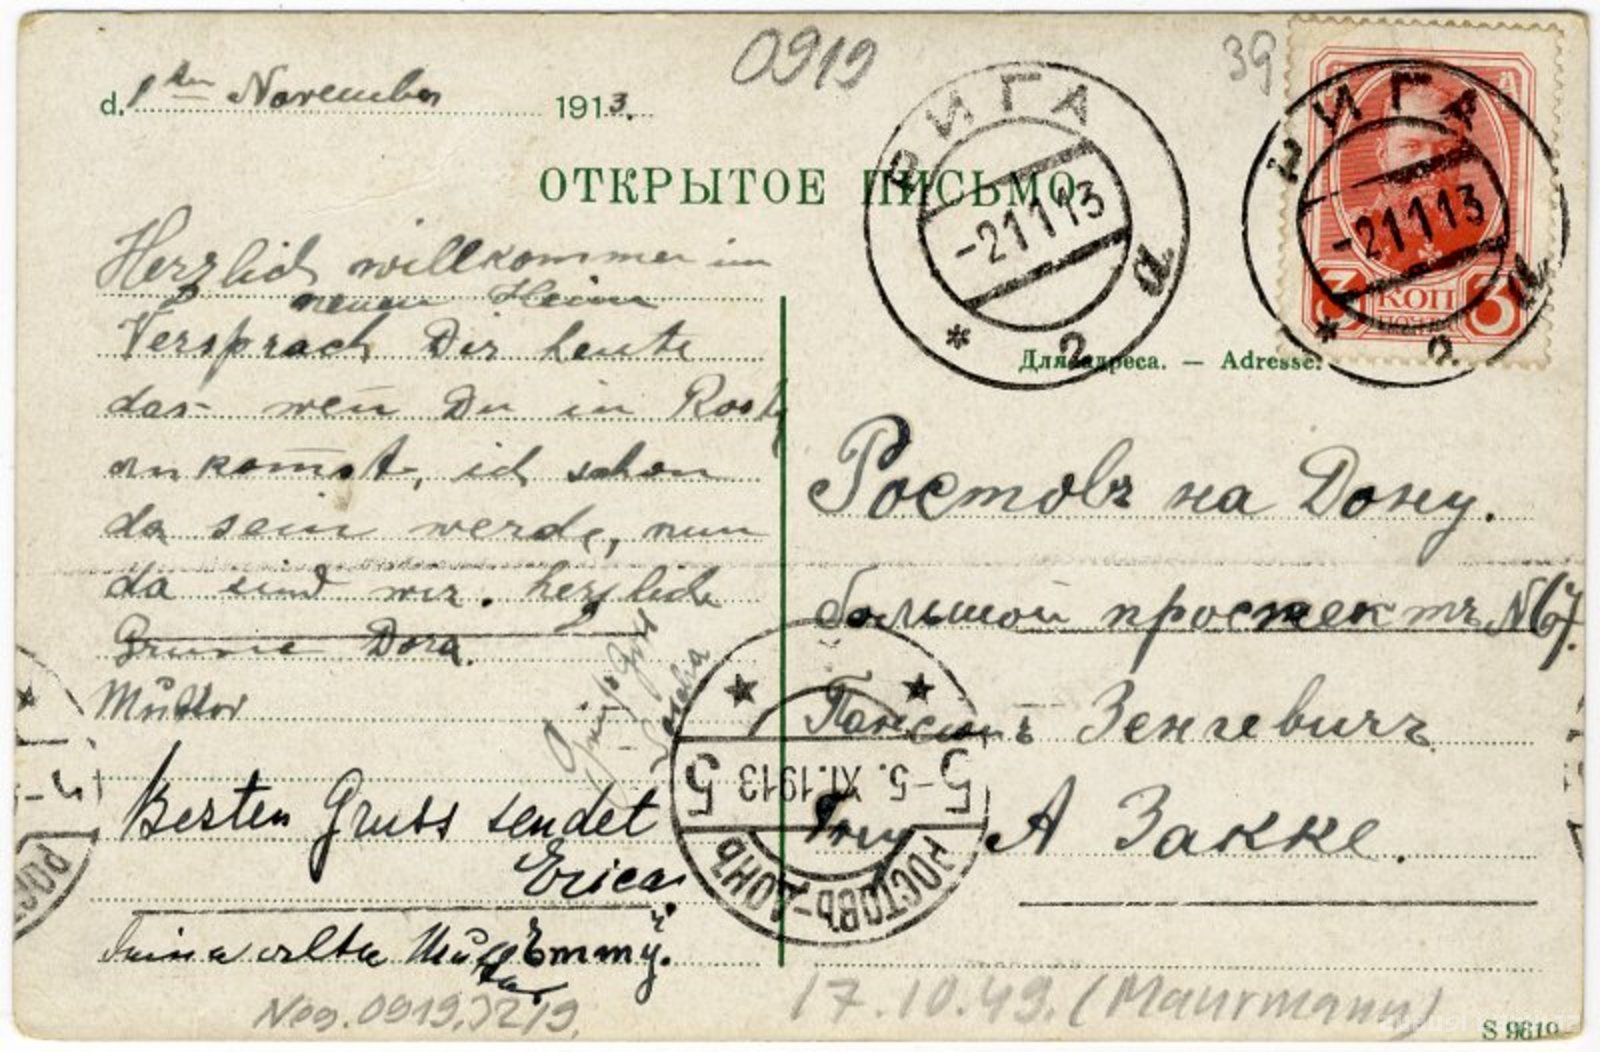 0919
39
d. 1ten November 1913.
ОТКРЫТОЕ ПИСЬМО
РИГА
-21113
а
* 2
РИГА
-21113
а
* 2
3 КОП 3
Для адреса. — Adresse:
Herzlich willkommen im
neuen Heim
Versprach Dir heute
das wen̄ Du in Rostq
ankom̄st, ich schon
da sein werde, nun
da sind wir. herzliche
Grüsse Dora.
Gruß
Sascha
Besten Gruss sendet
Erica.
alte Emmy.
Ростовъ на Дону.
большой проспектъ №67.
Пансионъ Зенгевичъ
Гну А Закке.
5 -5. XI. 1913 5
РОСТОВЪ-ДОНЪ
РОСТ
Neg. 0919.
17.10.49. (Maurmann)
S 9619